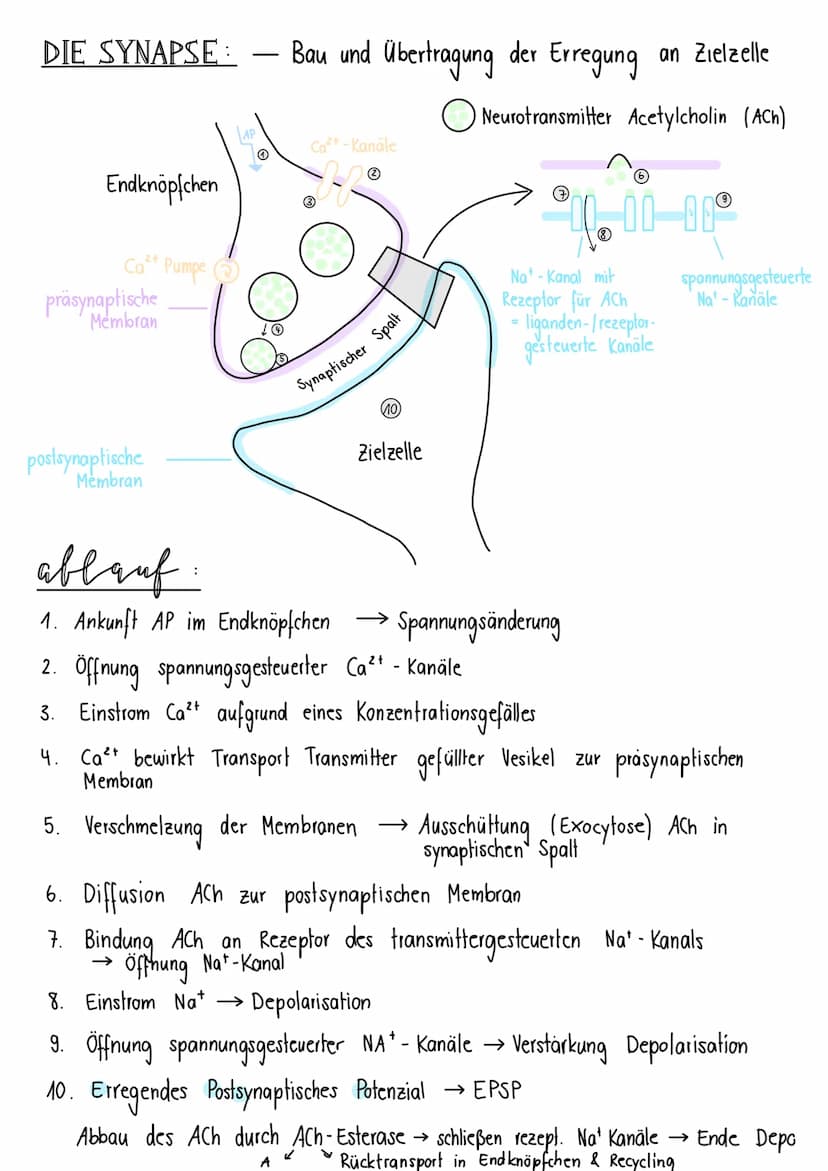 DIE SYNAPSE: — Bau und Übertragung der Erregung an Zielzelle
Neurotransmitter Acetylcholin (ACh)
AP
①
Ca²⁺-Kanäle
②
③
Endknöpfchen
Ca²⁺ Pumpe
präsynaptische
Membran
④
⑤
Synaptischer Spalt
⑩
Zielzelle
postsynaptische
Membran
⑥
⑦
⑧
⑨
Na⁺-Kanal mit
Rezeptor für ACh
= liganden-/rezeptor-
gesteuerte Kanäle
spannungsgesteuerte
Na⁺-Kanäle
ablauf:
1. Ankunft AP im Endknöpfchen → Spannungsänderung
2. Öffnung spannungsgesteuerter Ca²⁺-Kanäle
3. Einstrom Ca²⁺ aufgrund eines Konzentrationsgefälles
4. Ca²⁺ bewirkt Transport Transmitter gefüllter Vesikel zur präsynaptischen
Membran
5. Verschmelzung der Membranen → Ausschüttung (Exocytose) ACh in
synaptischen Spalt
6. Diffusion ACh zur postsynaptischen Membran
7. Bindung ACh an Rezeptor des transmittergesteuerten Na⁺-Kanals
→ Öffnung Na⁺-Kanal
8. Einstrom Na⁺ → Depolarisation
9. Öffnung spannungsgesteuerter NA⁺-Kanäle → Verstärkung Depolarisation
10. Erregendes Postsynaptisches Potenzial → EPSP
Abbau des ACh durch ACh-Esterase → schließen rezept. Na⁺ Kanäle → Ende Depo
A ↙ ↘ Rücktransport in Endknöpfchen & Recycling